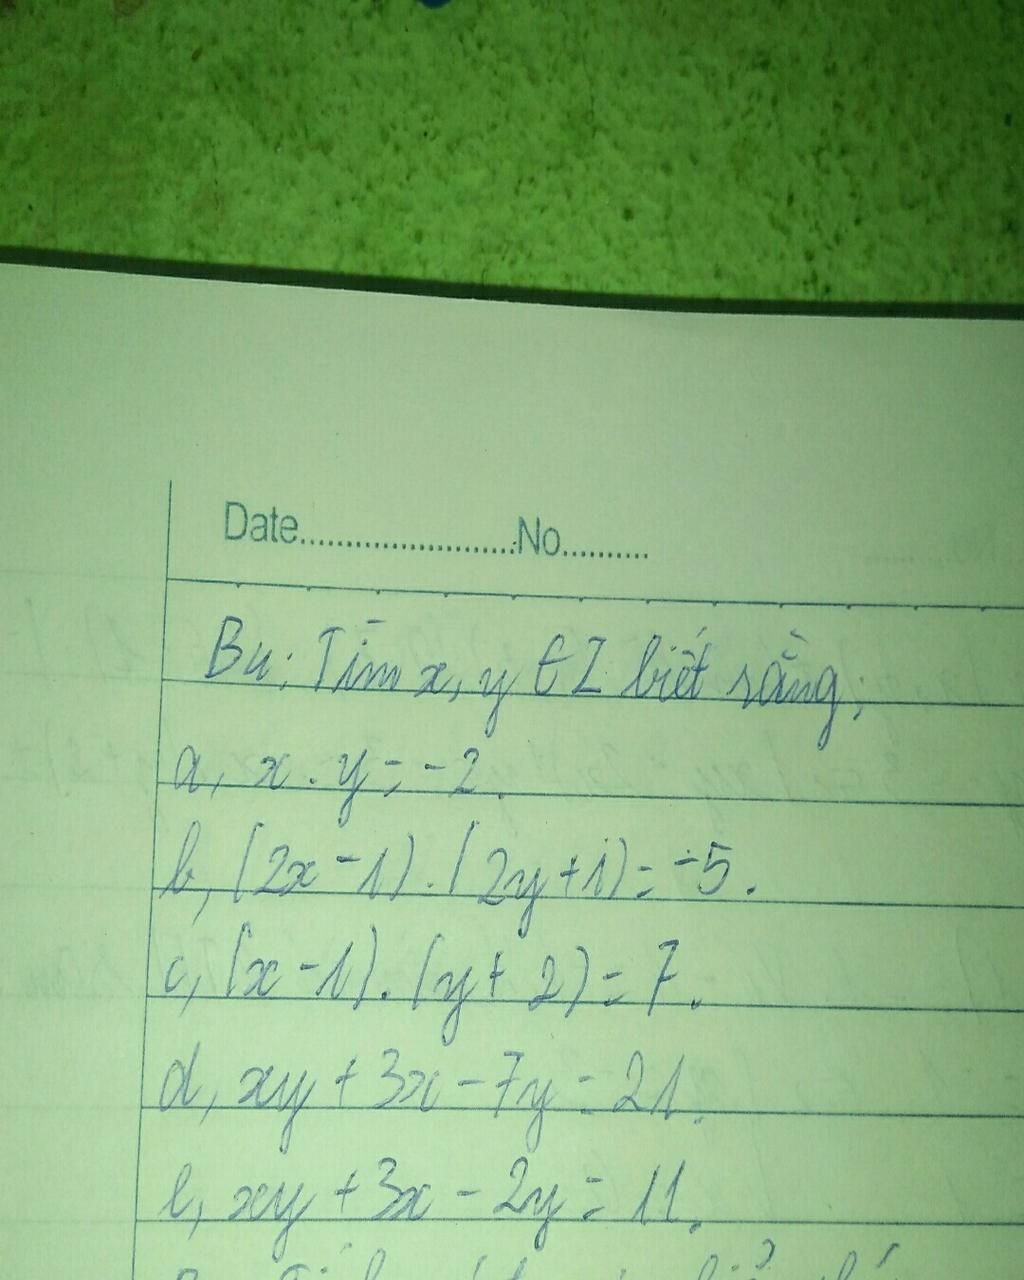 Date........................No..........
B4: Tìm x, y ∈ Z biết rằng:
a, x . y = -2.
b, (2x - 1) . (2y + 1) = -5.
c, (x - 1) . (y + 2) = 7.
d, xy + 3x - 7y = 21.
e, xy + 3x - 2y = 11.